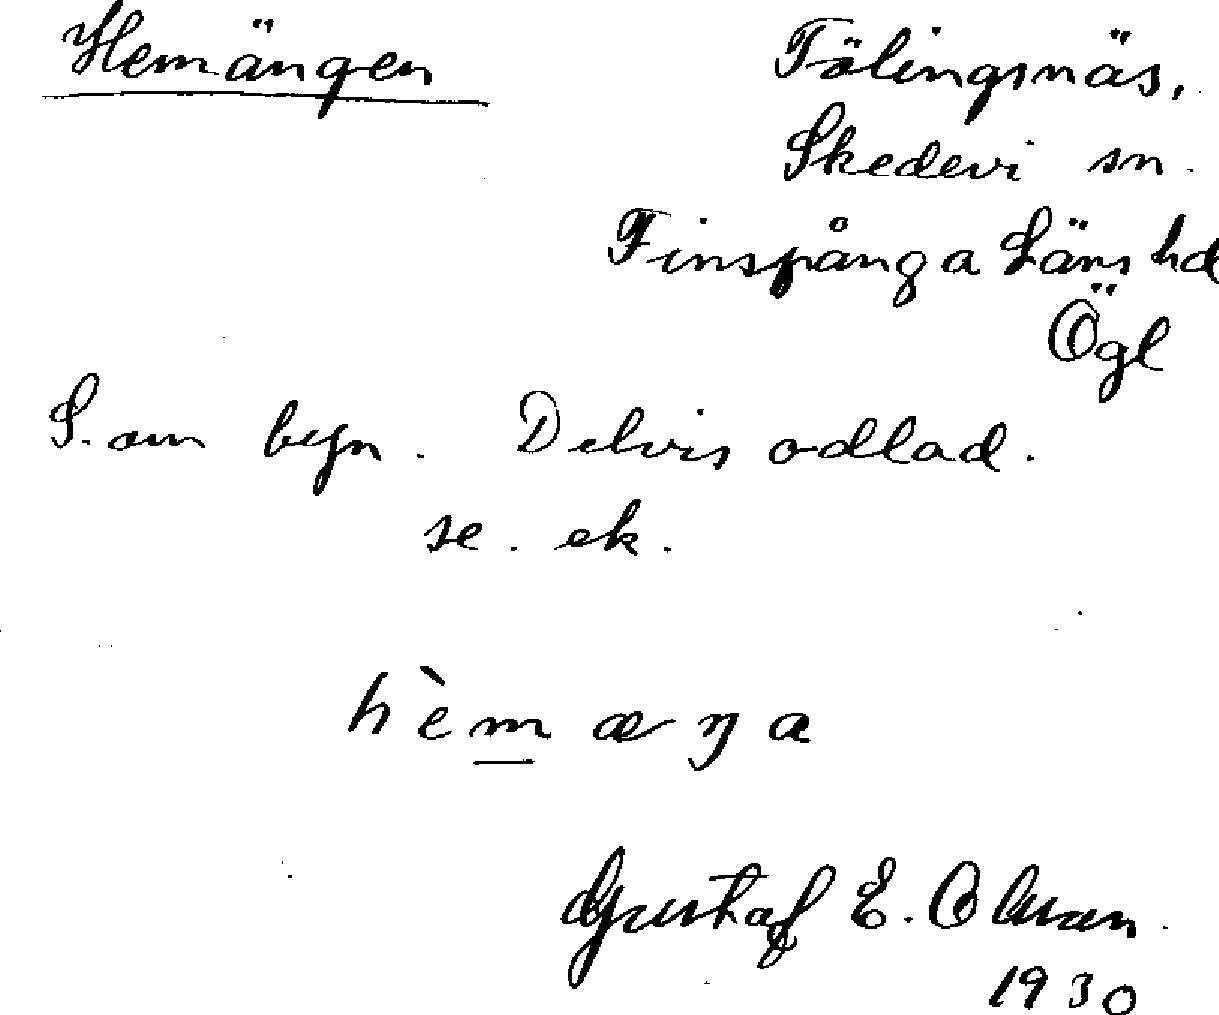 Hemängen
Tölingsnäs,
Skedevi sn.
Finspånga Läns hd
Ögl
S. om byn. Delvis odlad.
se. ek.
hèmæŋa
Gustaf E. Olsson.
1930